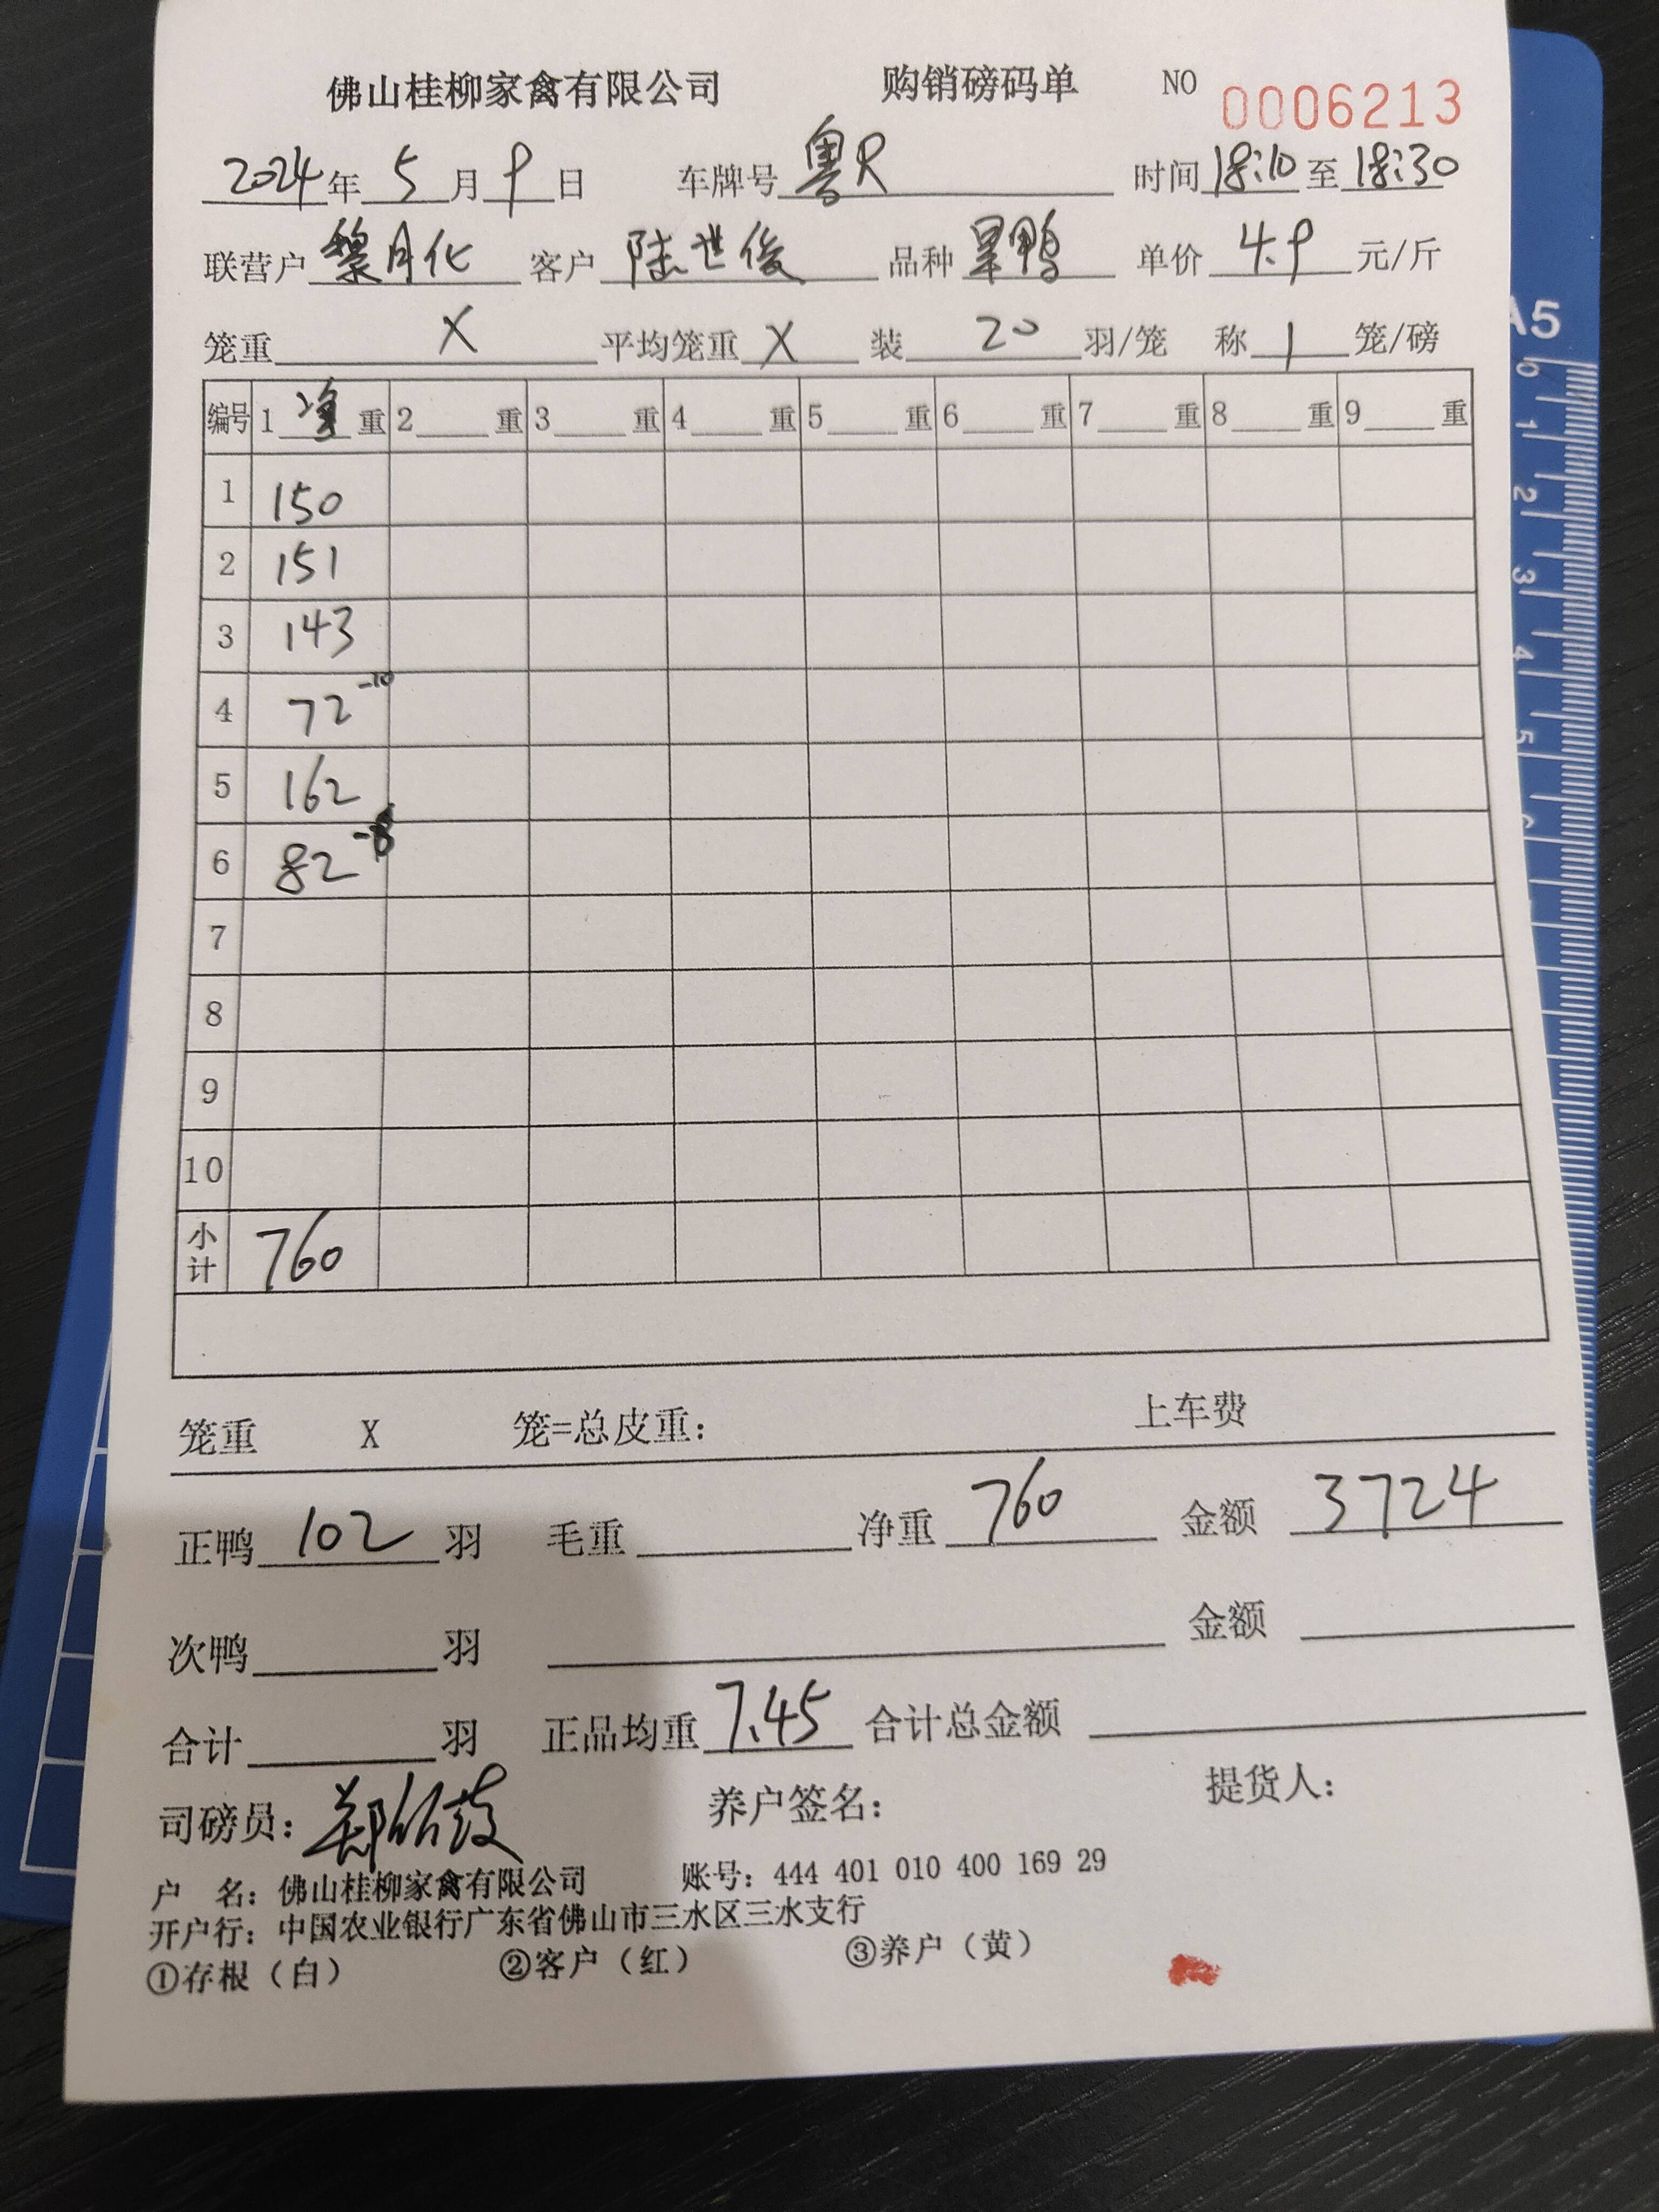 佛山桂柳家禽有限公司 购销磅码单 NO 0006213
2024年5月9日 车牌号 粤R 时间 18:10 至 18:30
联营户 黎月化 客户 陆世俊 品种 旱鸭 单价 4.9 元/斤
笼重 X 平均笼重 X 装 20 羽/笼 称 1 笼/磅
编号 1 净 重 2 重 3 重 4 重 5 重 6 重 7 重 8 重 9 重
1 150
2 151
3 143
4 72 -10
5 162
6 82
7
8
9
10
小计 760
笼重 X 笼=总皮重: 上车费
正鸭 102 羽 毛重 净重 760 金额 3724
次鸭 羽 金额
合计 羽 正品均重 7.45 合计总金额
司磅员: 养户签名: 提货人:
户 名: 佛山桂柳家禽有限公司 账号: 444 401 010 400 169 29
开户行: 中国农业银行广东省佛山市三水区三水支行
①存根（白） ②客户（红） ③养户（黄）
A5
0
1
2
3
4
5
6